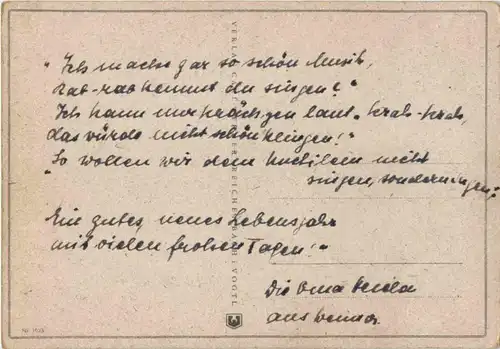 "Ich mache gar so schön Musik,
Rab-rab kannst du singen?"
Ich kann nur krächzen laut "krah-krah,
das würde nicht schön klingen!"
"So wollen wir dem nicht
singen, sondern
Ein gutes, neues Lebensjahr
mit vielen frohen Tagen!"
Die Oma
aus Weimar.
VERLAG REICHENBACH I. VOGTL.